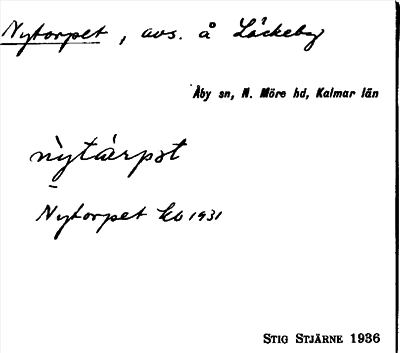 Nytorpet, avs. å Läckeby
Åby sn, N. Möre hd, Kalmar län
nỳtàrpət
Nytorpet kb 1931
STIG STJÄRNE 1936